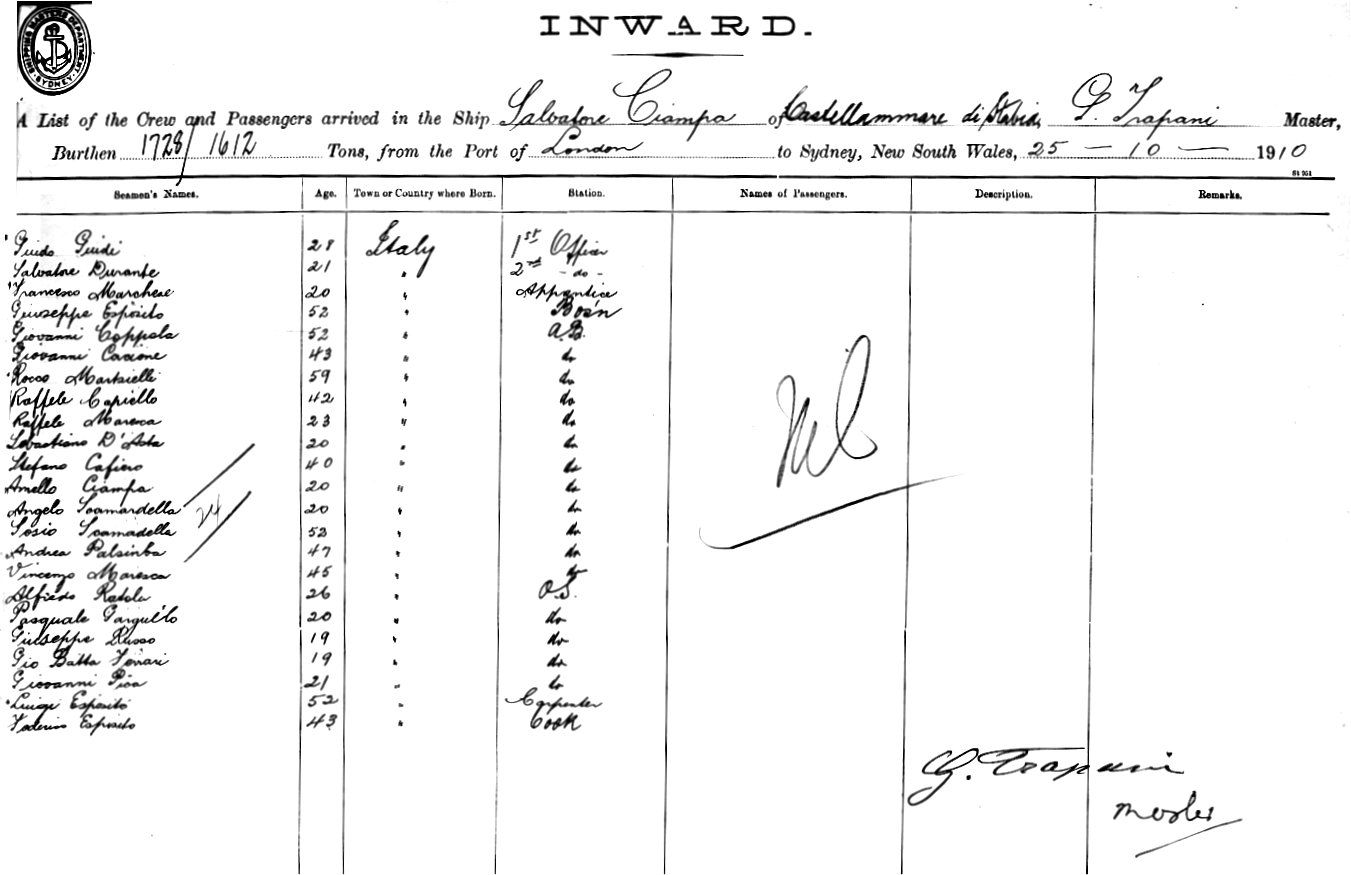 SHIPPING MASTER'S DEPARTMENT SYDNEY
INWARD.
A List of the Crew and Passengers arrived in the Ship Salvatore Ciampa of Castellammare di Stabia, G. Trapani Master,
Burthen 1728/1612 Tons, from the Port of London to Sydney, New South Wales, 25 - 10 - 1910
St 951
Seamen's Names. Age. Town or Country where Born. Station. Names of Passengers. Description. Remarks.
Guido Guidi 28 Italy 1st Officer
Salvatore Durante 21 " 2nd - do -
Francesco Marchese 20 " Apprentice
Giuseppe Esposito 52 " Bos'n
Giovanni Coppola 52 " A.B.
Giovanni 43 " do
Rocco 59 " do
Raffele Capiello 42 " do
Raffele Maresca 23 " do
Sebastiano D'Asta 20 " do
Stefano Cafiero 40 " do
Anello Ciampa 20 " do
Angelo Scamardella 20 " do
Sosio Scamadella 52 " do
Andrea 47 " do
Vincenzo Maresca 45 " do
Alfredo 26 " O.S.
Pasquale Gargulo 20 " do
Giuseppe Russo 19 " do
Gio Batta Ferrari 19 " do
Giovanni 21 " do
Luigi Esposito 52 " Carpenter
Esposito 43 " Cook
24
Nil
G. Trapani
Master